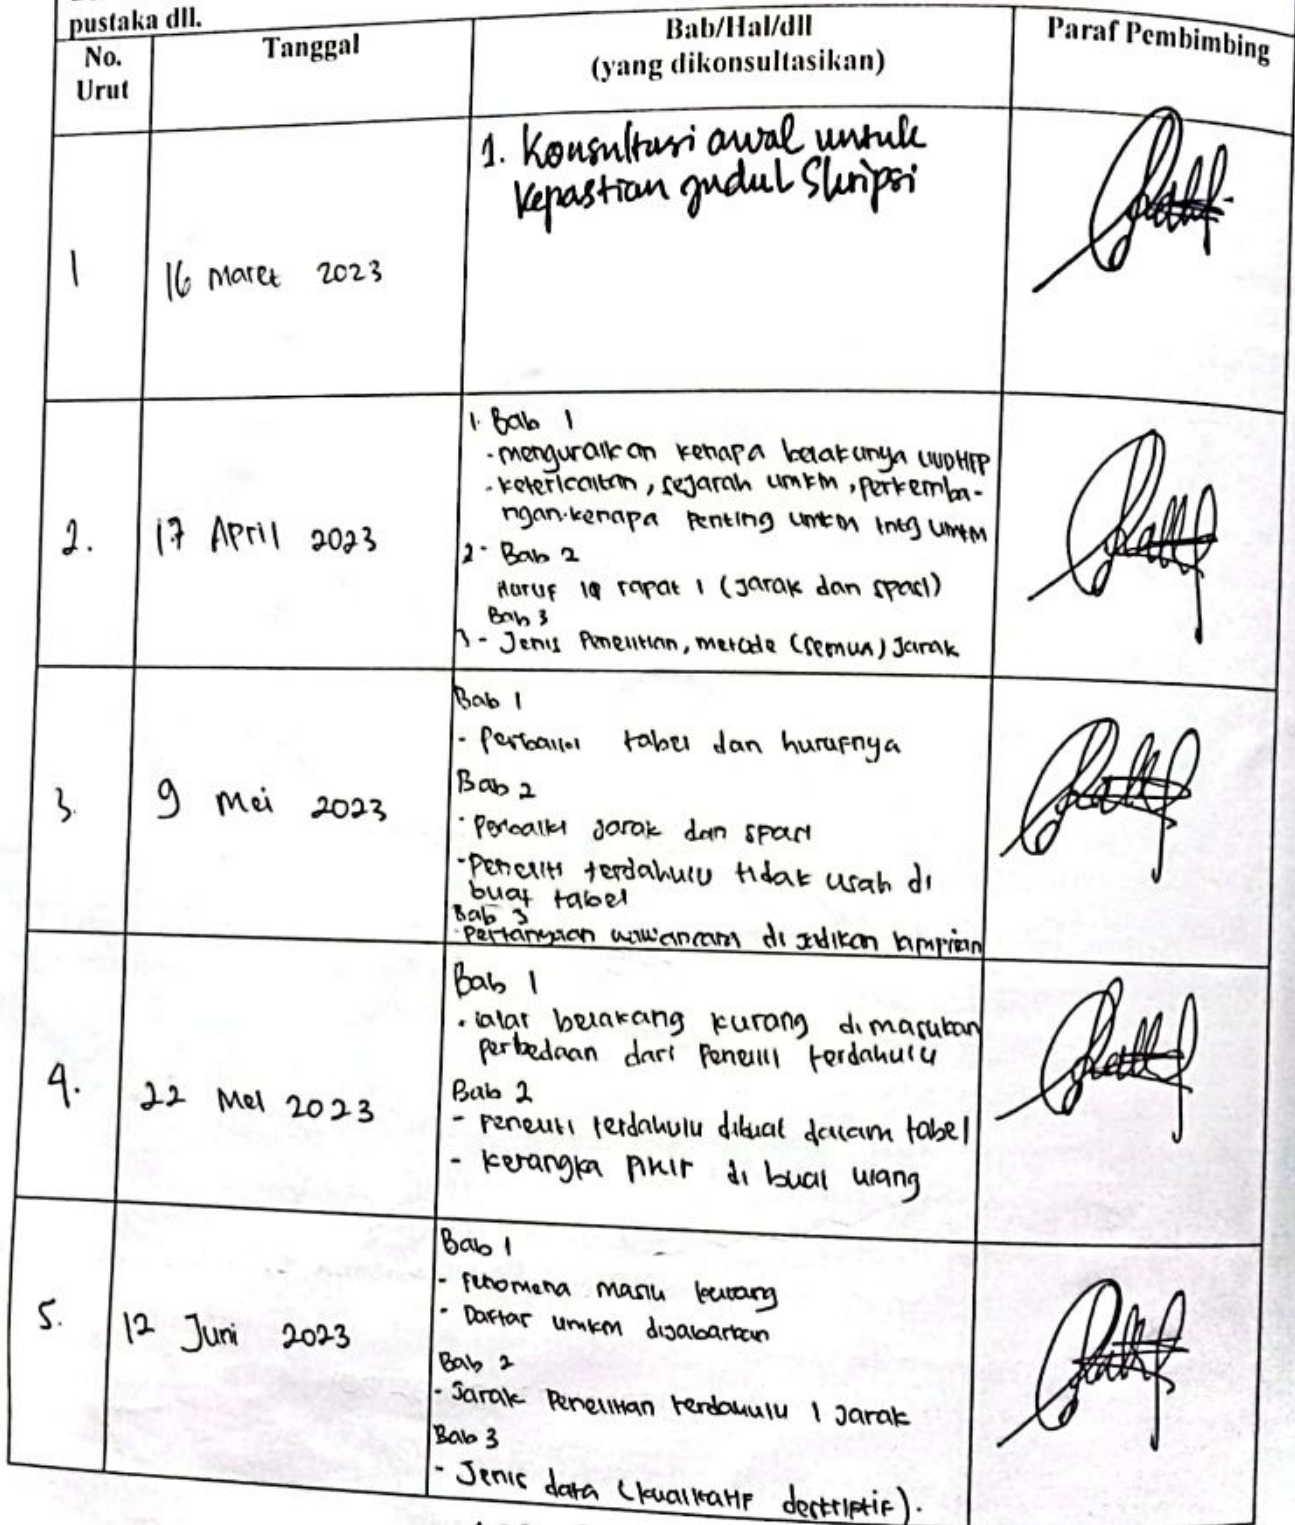 pustaka dll.
No.
Urut
Tanggal
Bab/Hal/dll
(yang dikonsultasikan)
Paraf Pembimbing
1
16 Maret 2023
1. Konsultasi awal untuk
kepastian judul Skripsi
2.
17 April 2023
1. Bab 1
- menguraikan kenapa berlakunya UUDHPP
- keterkaitan, sejarah umkm, perkemba-
ngan. kenapa penting umkm UMKM
2. Bab 2
Huruf rapat 1 (Jarak dan spasi)
Bab 3
3 - Jenis Penelitian, metode (semua) Jarak
3.
9 Mei 2023
Bab 1
- Perbaiki tabel dan hurufnya
Bab 2
- Perbaiki Jarak dan spasi
- Peneliti terdahulu tidak usah di
buat tabel
Bab 3
- Pertanyaan wawancara di jadikan lampiran
4.
22 Mei 2023
Bab 1
- latar belakang kurang dimasukan
perbedaan dari Peneliti terdahulu
Bab 2
- Peneliti terdahulu dibuat dalam tabel
- kerangka pikir di buat ulang
5.
12 Juni 2023
Bab 1
- Fenomena masih kurang
- Daftar umkm dijabarkan
Bab 2
- Jarak Penelitian terdahulu 1 Jarak
Bab 3
- Jenis data (kualitatif deskriptif).